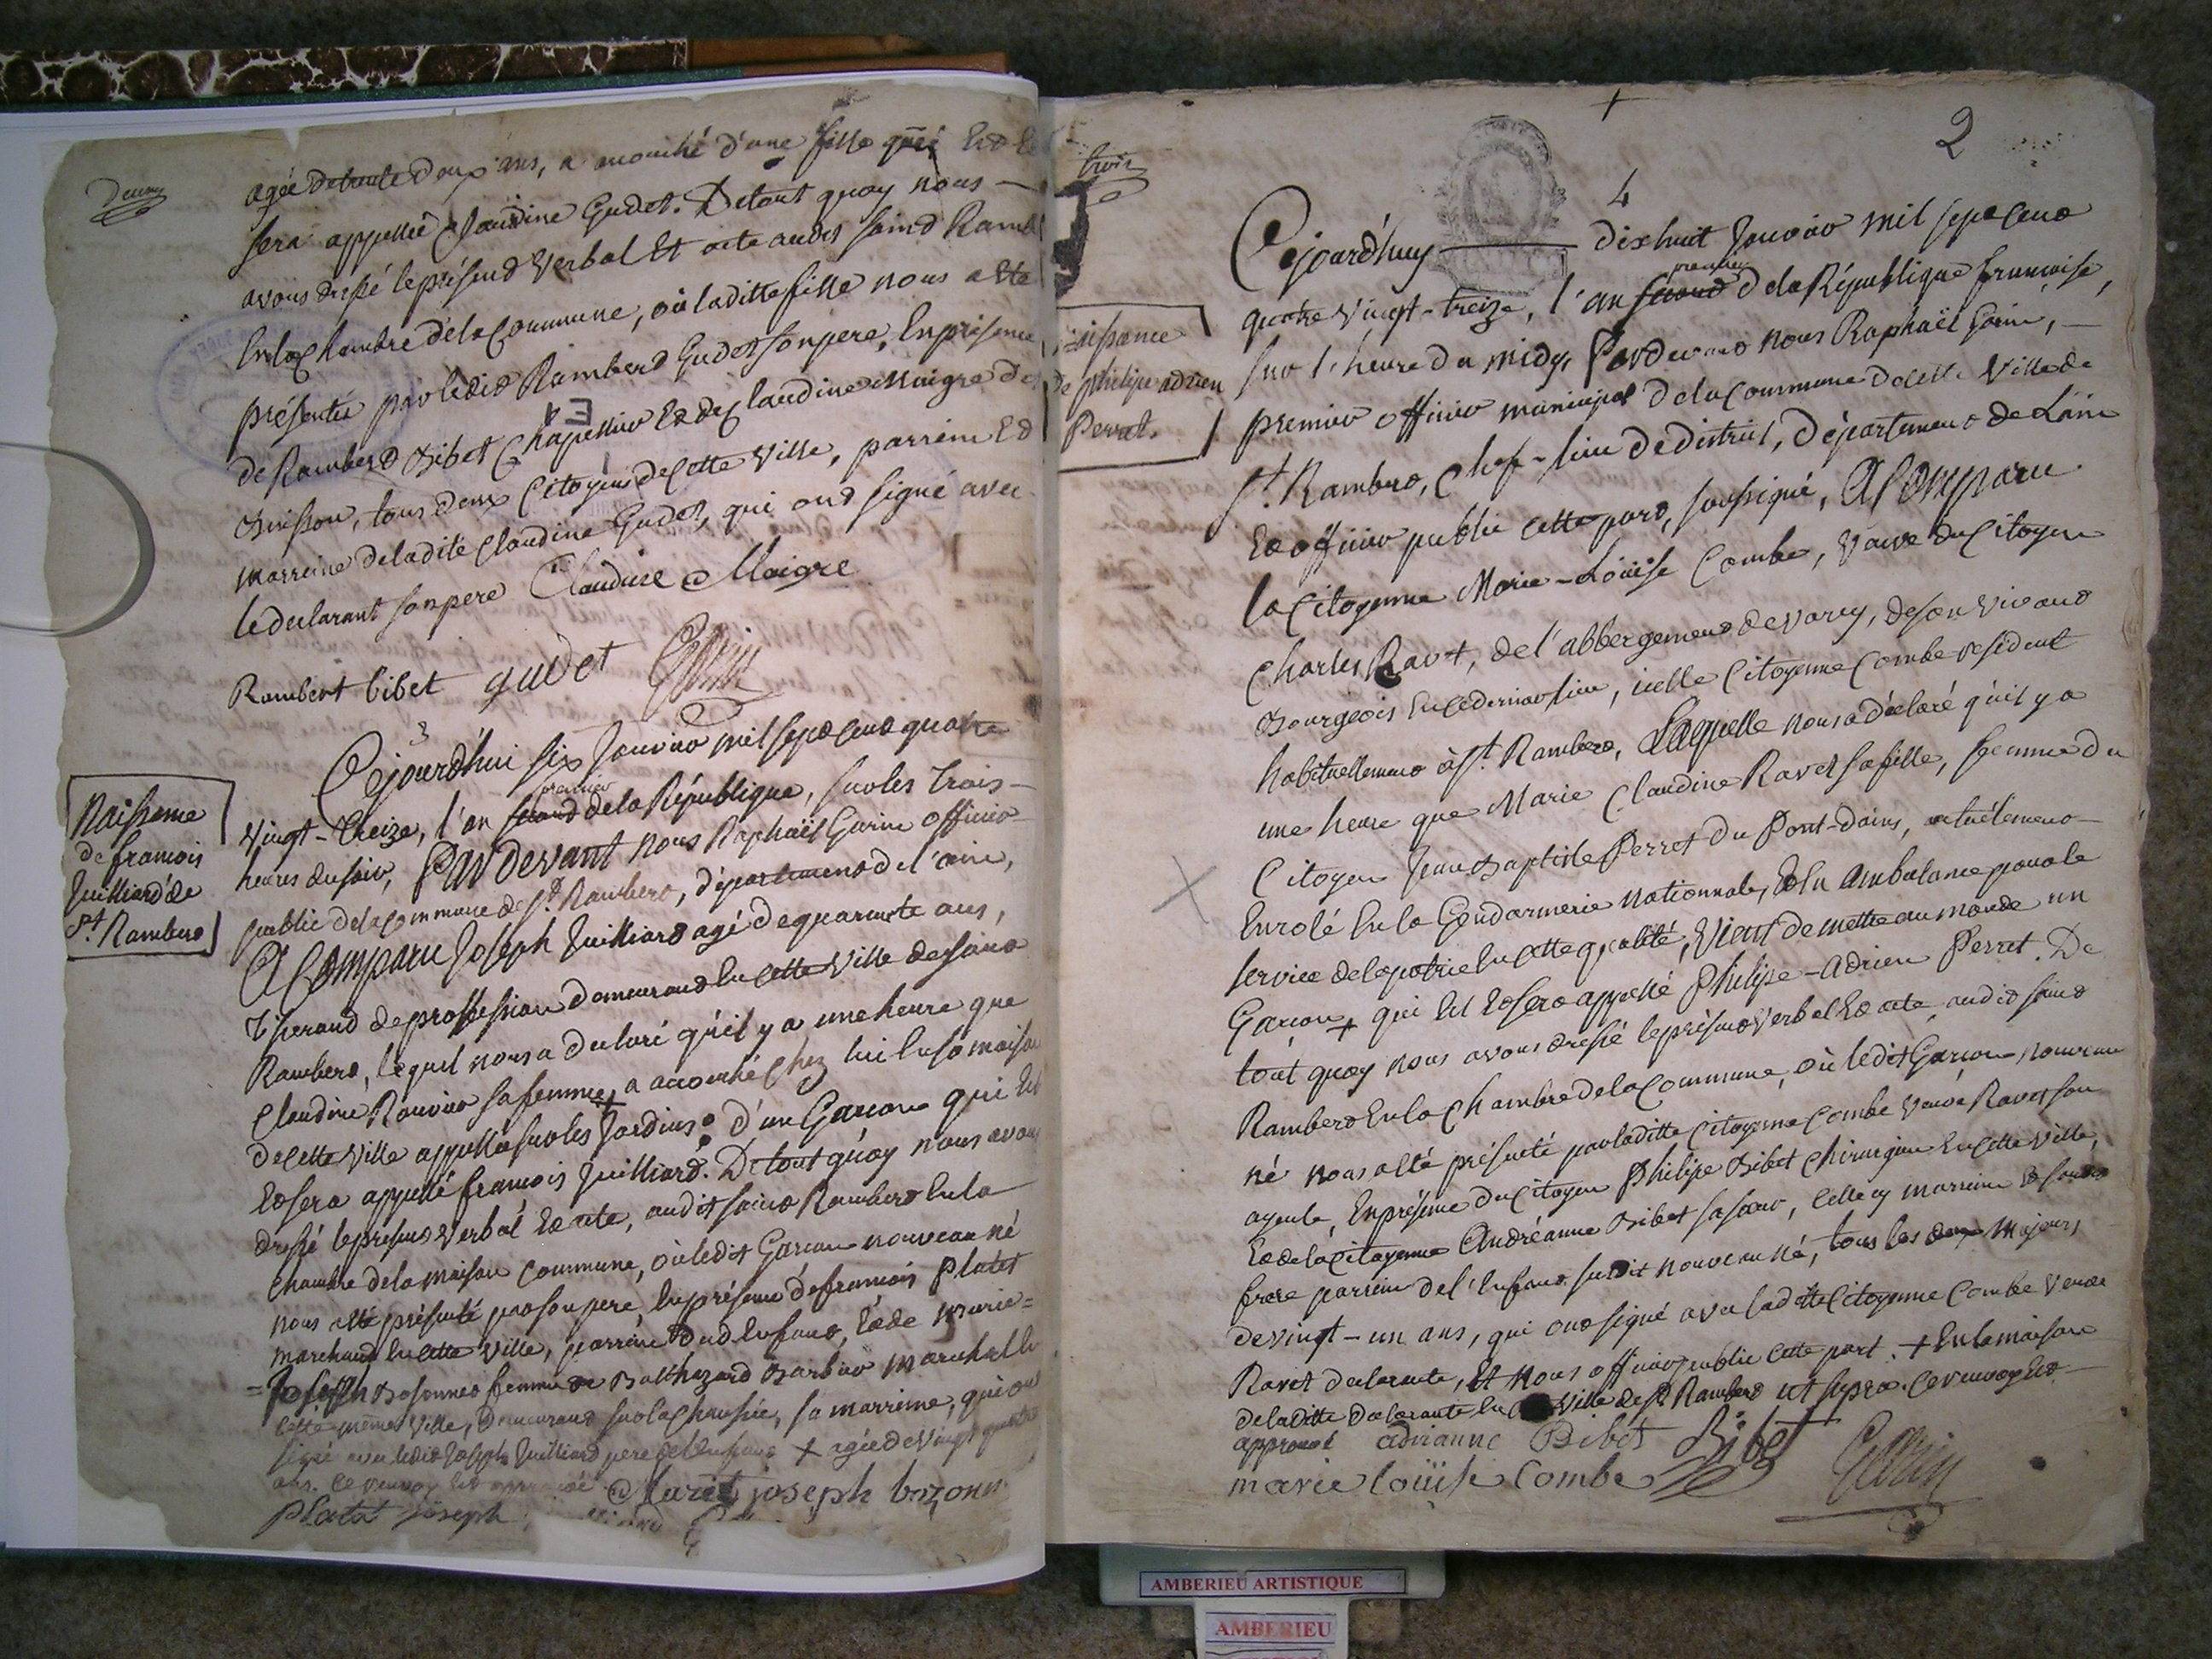 deux
agée detrente deux ans, a accouché d'une fille qui Est Et
sera appellée Claudine Gudet. Detout quoy nous —
avons dressé leprésent verbal Et acte audit saint Rambert
Enla Chambre delaCommune, où laditte fille nous a Eté
présentée par ledit Rambert Gudet son pere, En présence
de Rambert Bibet Chapellier Et de Claudine Maigre
Buisson, tous deux Citoyens de Cette ville, parrein Et
marreine deladite Claudine Gudet, qui ont signé avec
le declarant son pere Claudine Maigre
Rambert bibet gudet
3
Cejourd'hui six Janvier mil sept cent quatre
vingt-treize, l'an second premier dela République, sur les trois —
heures du soir, Pardevant nous Raphaël Gorin officier
public dela Commune de St. Rambert, département de l'ain,
A Comparu Joseph Juilliard agé dequarante ans,
tisserand de profession demeurant En cette ville de saint
Rambert, lequel nous a declaré qu'il y a une heure que
Claudine Rouvier sa femme, + a accouché chez lui En sa maison
de cette ville appellée sur les Jardins d'un Garcon qui Est
Et sera appellé francois Juilliard. De tout quoy nous avons
dressé le présent verbal Et acte, audit saint Rambert En la
chambre dela maison Commune, où ledit Garcon nouveau né
nous a Eté présenté par son pere, En présence de francois Platet
marchand En cette ville, parrein dud. Enfant, Et de Marie=
=Joseph Bosonnet femme de Balthazard Barbier marechal En
cette même ville, demeurant sur la Chaussée, sa marreine, qui ont
signé avec ledit Joseph Juilliard pere de l'Enfant + agée de vingt quatre
ans. Ce renvoy Est approuvé. Marie joseph bozonn
Platet joseph
Naissance
de francois
Juilliard de
St. Rambert
trois
2
4
Naissance
de Philipe adrien
Perret.
Cejourd'huy dixhuit Janvier mil sept cent
quatre vingt-treize, l'an second premier de la République francaise,
sur l'heure du midy, Pardevant nous Raphaël Gorin, —
premier officier municipal de la Commune de cette ville de
St. Rambert, Chef-lieu de district, département de L'ain
Et officier public cette part, soussigné, A Comparu
la Citoyenne Marie-Louise Combe, veuve du Citoyen
Charles Ravet, de l'abbergement de varey, de son vivant
Bourgeois En ce dernier lieu, icelle Citoyenne Combe résident
habituellement à St. Rambert, Laquelle nous a déclaré qu'il y a
une heure que Marie Claudine Ravet sa fille, femme du
Citoyen Jean Baptiste Perret du Pont-dains, actuélement
Enrolé En la Gendarmerie nationnale, Et En ambulance pour le
service de la patrie En cette qualité, vient de mettre au monde un
Garcon + qui Est Et sera appellé Philipe-Adrien Perret. De
tout quoy nous avons dressé le présent verbal Et acte, audit saint
Rambert En la Chambre de la Commune, où ledit Garcon nouveau
né nous a Eté présenté par laditte Citoyenne Combe veuve Ravet son
ayeule, En présence du Citoyen Philipe Bibet chirurgien En cette ville,
Et de la Citoyenne Andréanne Bibet sa sœur, celle cy marreine Et son
frere parrein de l'Enfant susdit nouveau né, tous les deux majeurs
de vingt-un ans, qui ont signé avec laditte Citoyenne Combe veuve
Ravet declarante, Et Nous officier public cette part. + En la maison
de laditte declarante En ville de St. Rambert ut supra. Ce renvoy Est
approuvé adrianne Bibet Bibet
marie louïse Combe Gorin
AMBERIEU ARTISTIQUE
AMBERIEU